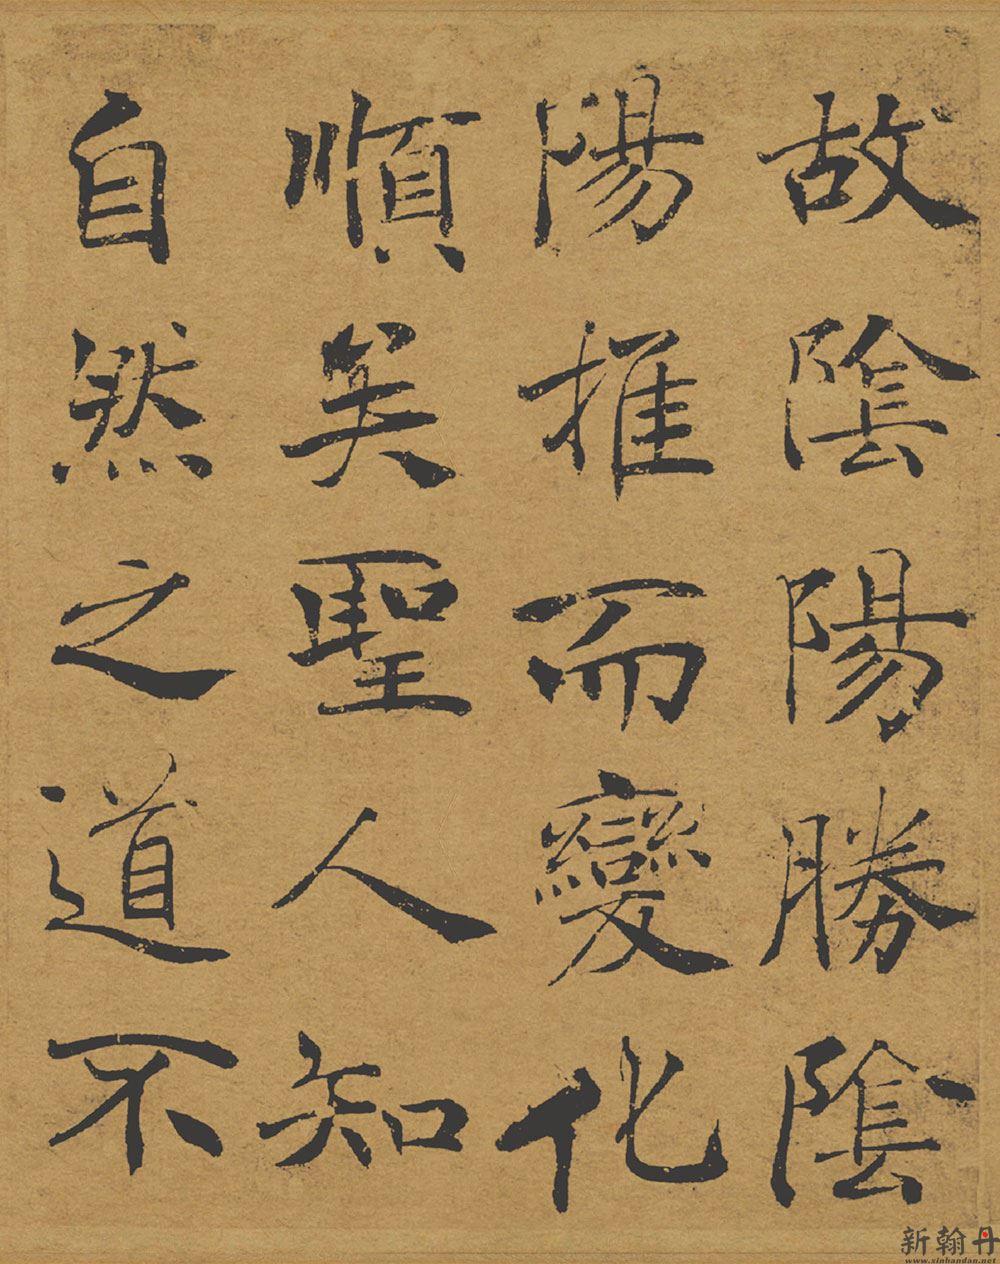 故陰陽勝陰
陽推而變化
順矣聖人知
自然之道不
新翰丹
www.xinhandan.net